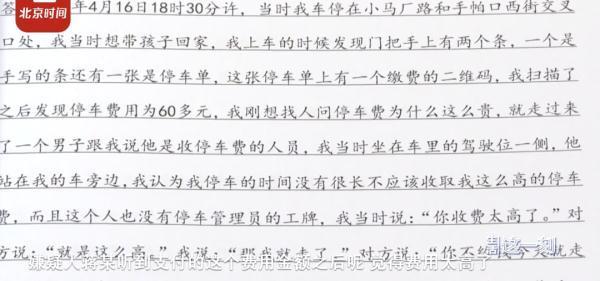 北京时间
答 年4月16日18时30分许，当时我车停在小马厂路和手帕口西街交叉
口处，我当时想带孩子回家，我上车的时候发现门把手上有两个条，一个是
手写的条还有一张是停车单，这张停车单上有一个缴费的二维码，我扫描了
之后发现停车费用为60多元，我刚想找人问停车费为什么这么贵，就走过来
了一个男子跟我说他是收停车费的人员，我当时坐在车里的驾驶位一侧，他
站在我的车旁边，我认为我停车的时间没有很长不应该收取我这么高的停车
费，而且这个人也没有停车管理员的工牌，我当时说：“你收费太高了。”对
方说：“就是这么高。”我说：“那我就走了。”对方说：“你不 就走
嫌疑人蒋某听到支付的这个费用金额之后呢 觉得费用太高了